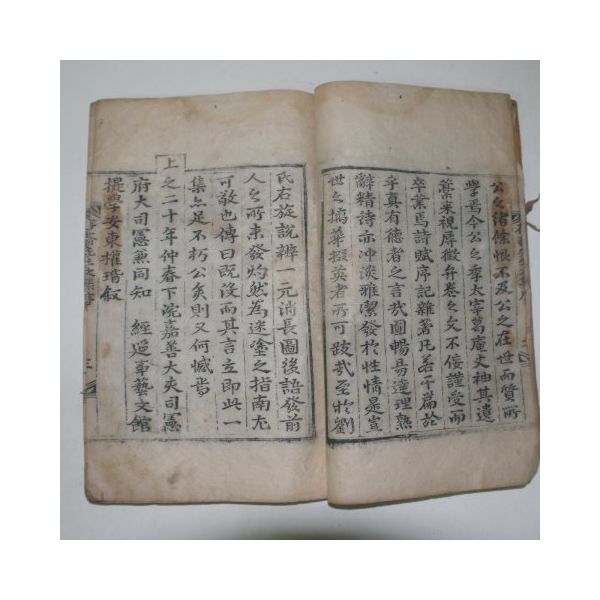 公之緒餘恨不及公之在世而質所
學焉今公之季太宰葛庵丈袖其遺
藁来視屬徵弁卷之文不佞謹受而
卒業焉詩賦序記雜著凡若干篇於
乎真有德者之言哉圓暢昜達理熟
辭精詩亦冲淡雅潔發於性情是豈
世之摛華掇英者所可跂哉至於劉
氏右旋說辨一元消長圖後語發前
人之所未發灼然為迷塗之指南尤
可敬也傳曰既沒而其言立即此一
集亦足不朽公矣則又何憾焉
上之二十年仲春下浣嘉善大夫司憲
府大司憲兼同知 經筵事藝文館
提學安東權瑎叙